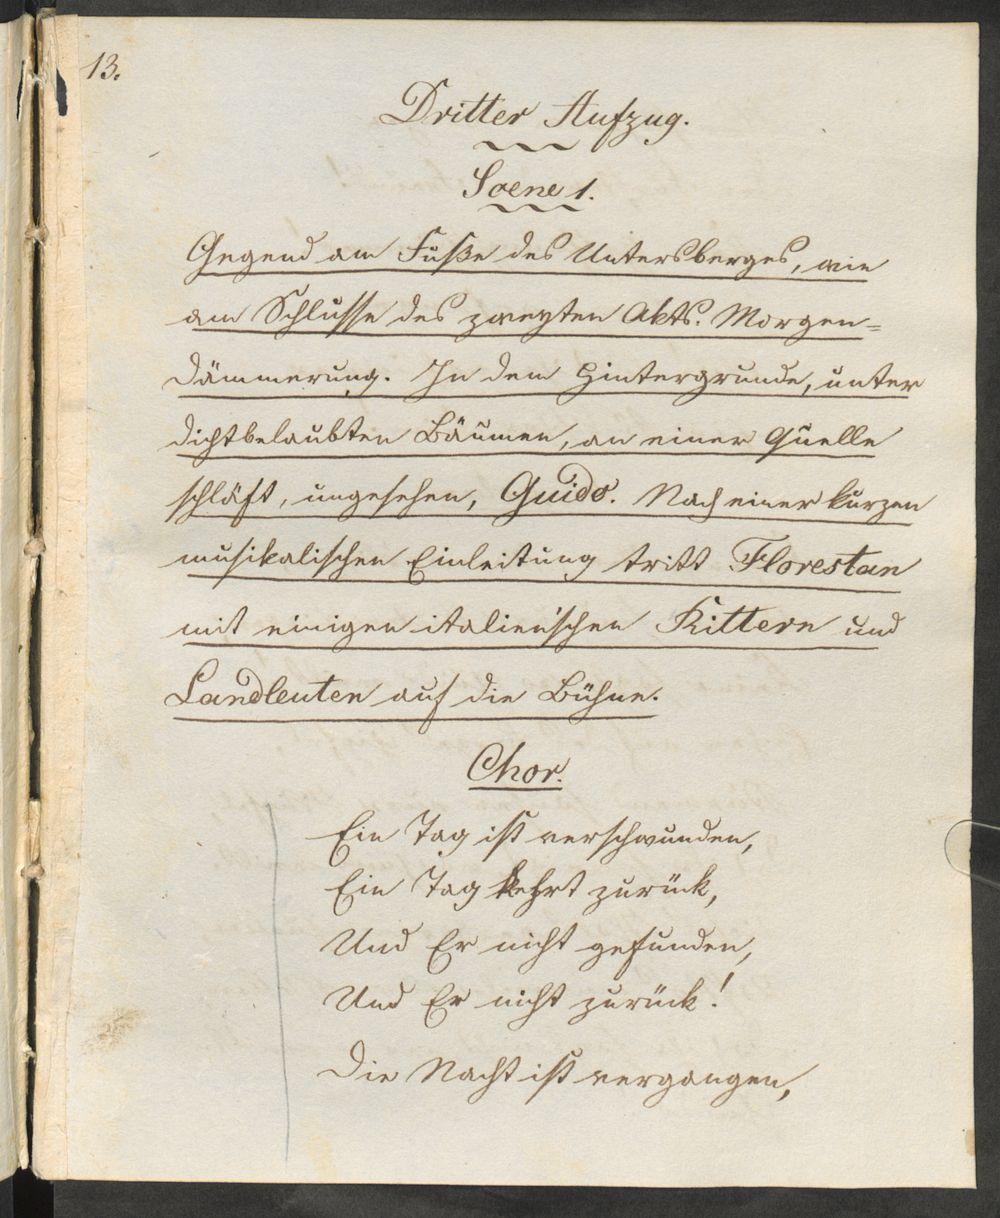 13.
Dritter Aufzug.
Scene 1.
Gegend am Fuße des Untersberges, wie
am Schlusse des zweyten Akts. Morgen=
dämmerung. In dem Hintergrunde, unter
dichtbelaubten Bäumen, an einer Quelle
schläft, ungesehen, Guido. Nach einer kurzen
musikalischen Einleitung tritt Florestan
mit einigen italien'schen Rittern und
Landleuten auf die Bühne.
Chor.
Ein Tag ist verschwunden,
Ein Tag kehrt zurück,
Und Er nicht gefunden,
Und Er nicht zurück!
Die Nacht ist vergangen,